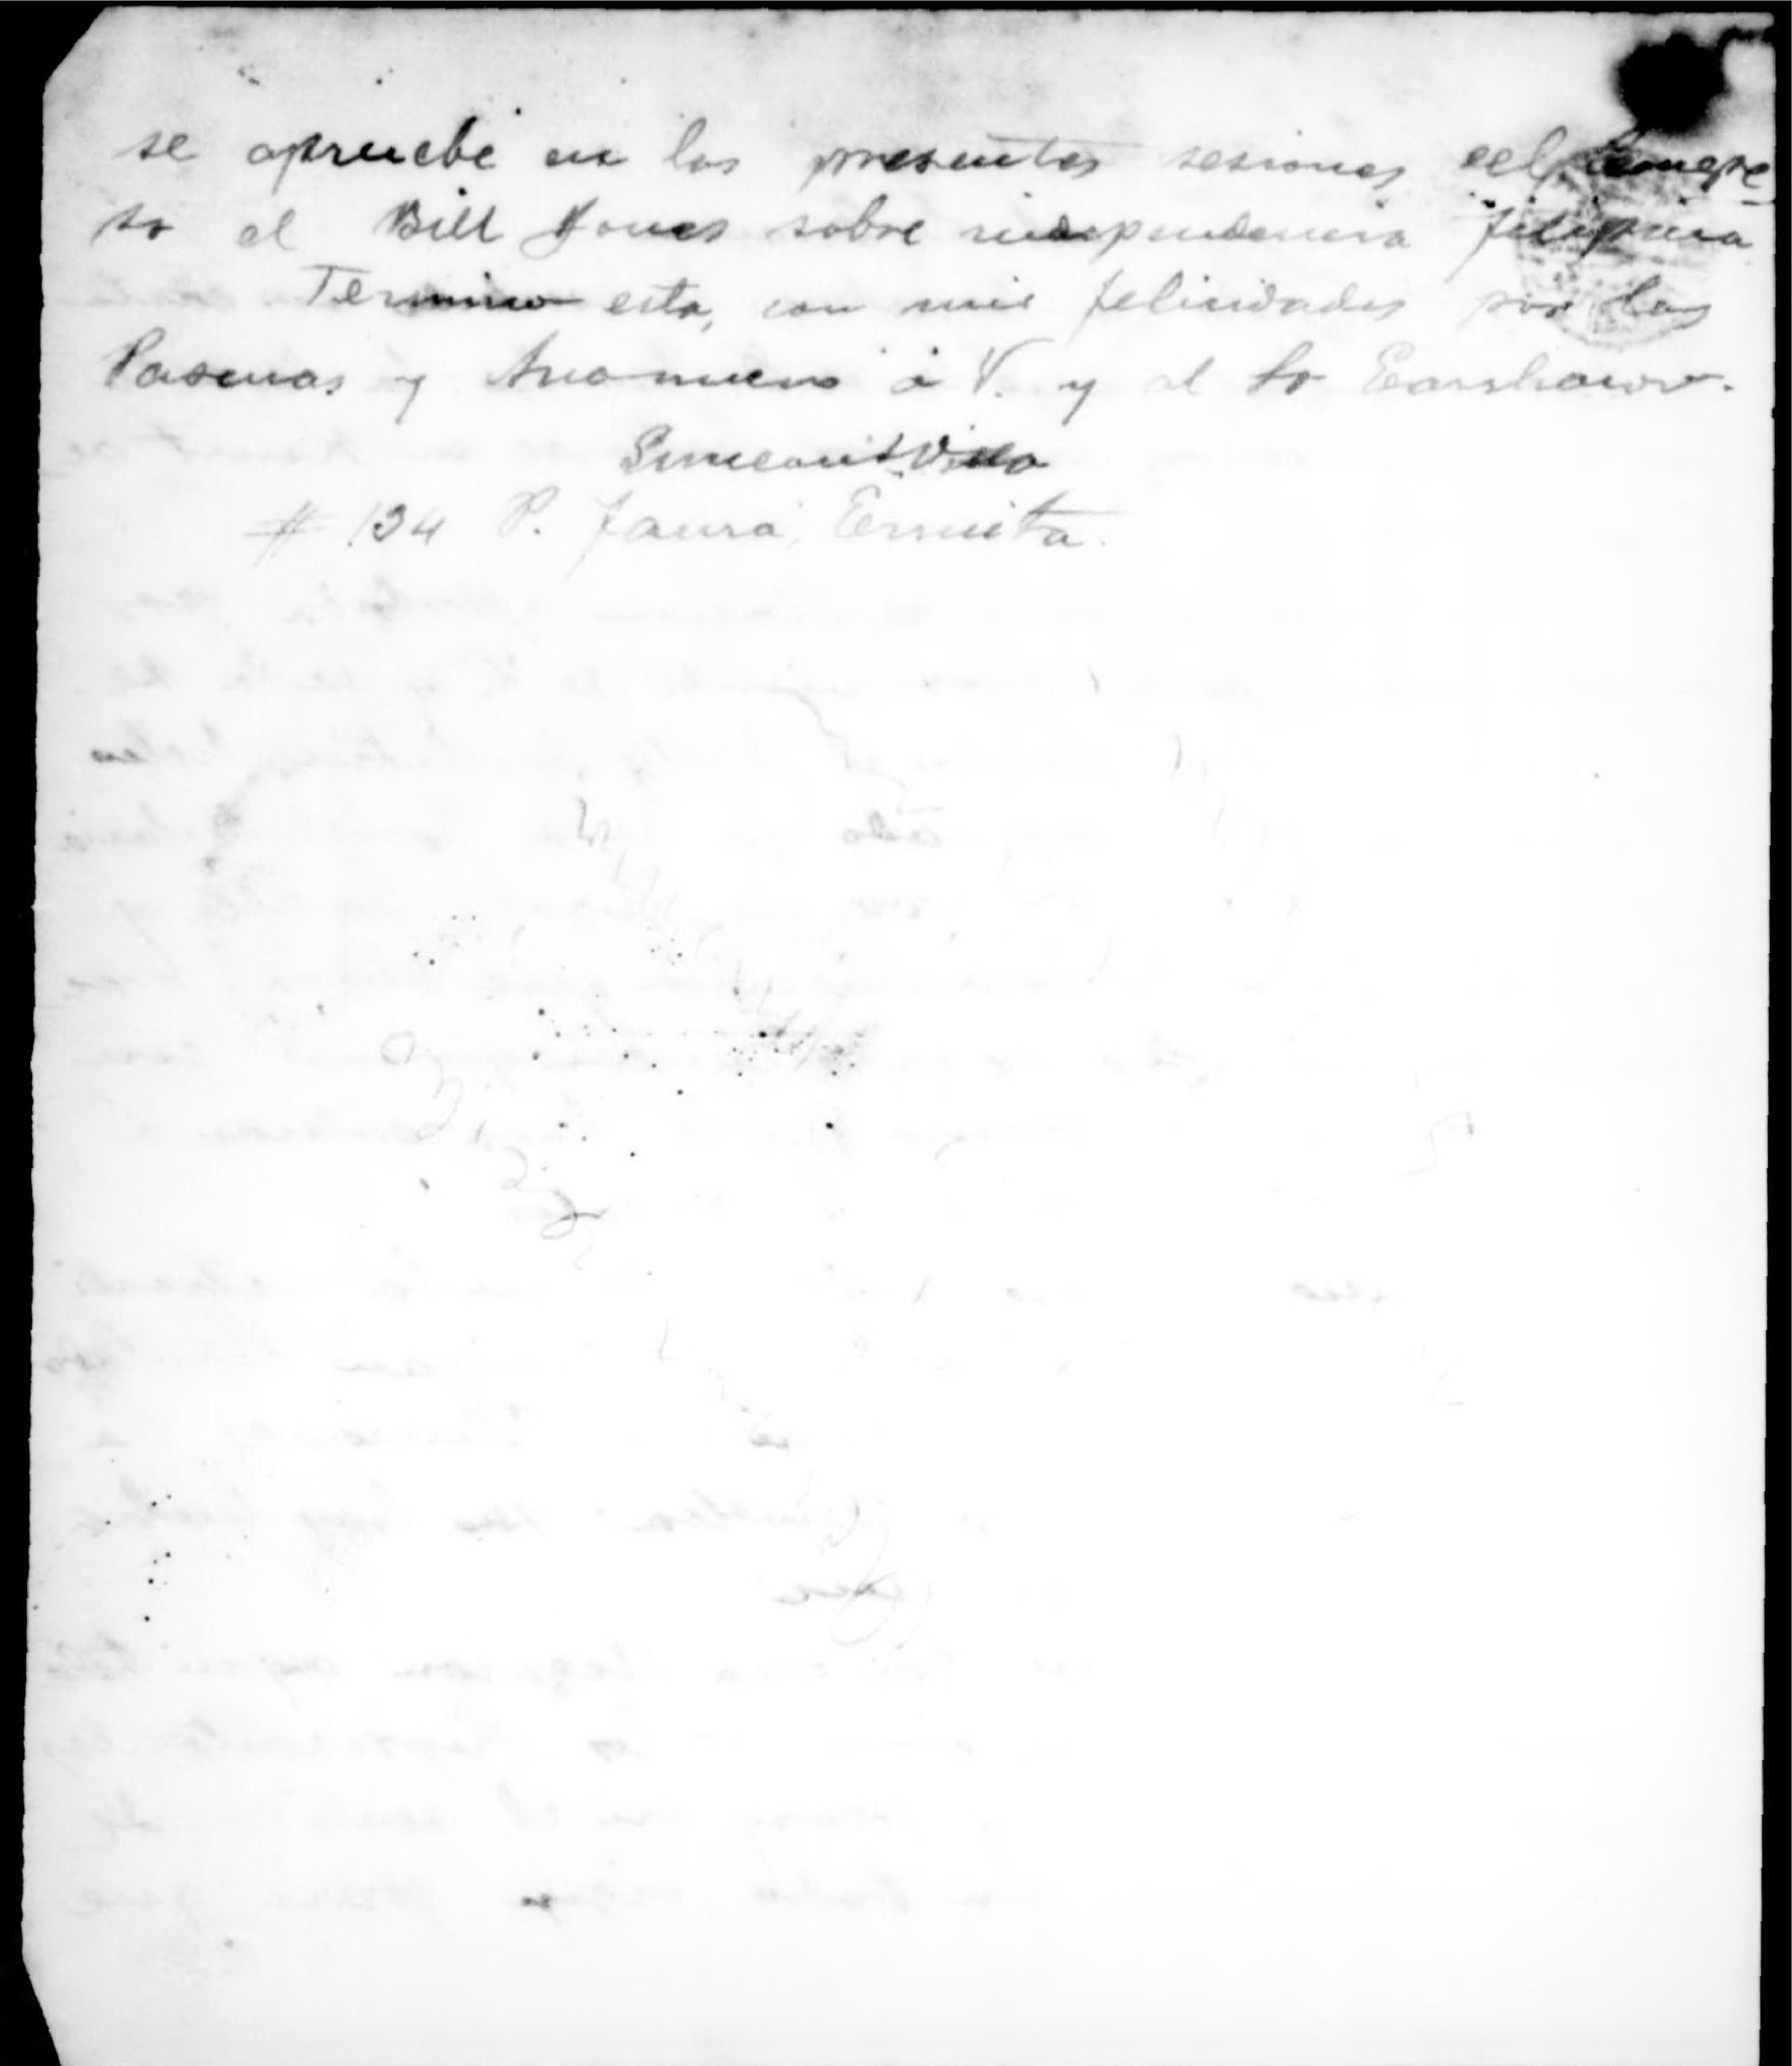 se apruebe en las presentes sesiones del Congre-
so el Bill Jones sobre independencia filipina
Termino esta, con mis felicidades por las
Pascuas y Año nuevo á V. y al Sr Earnshaw.
Simeon A. Villa
# 134 P. Faura, Ermita.